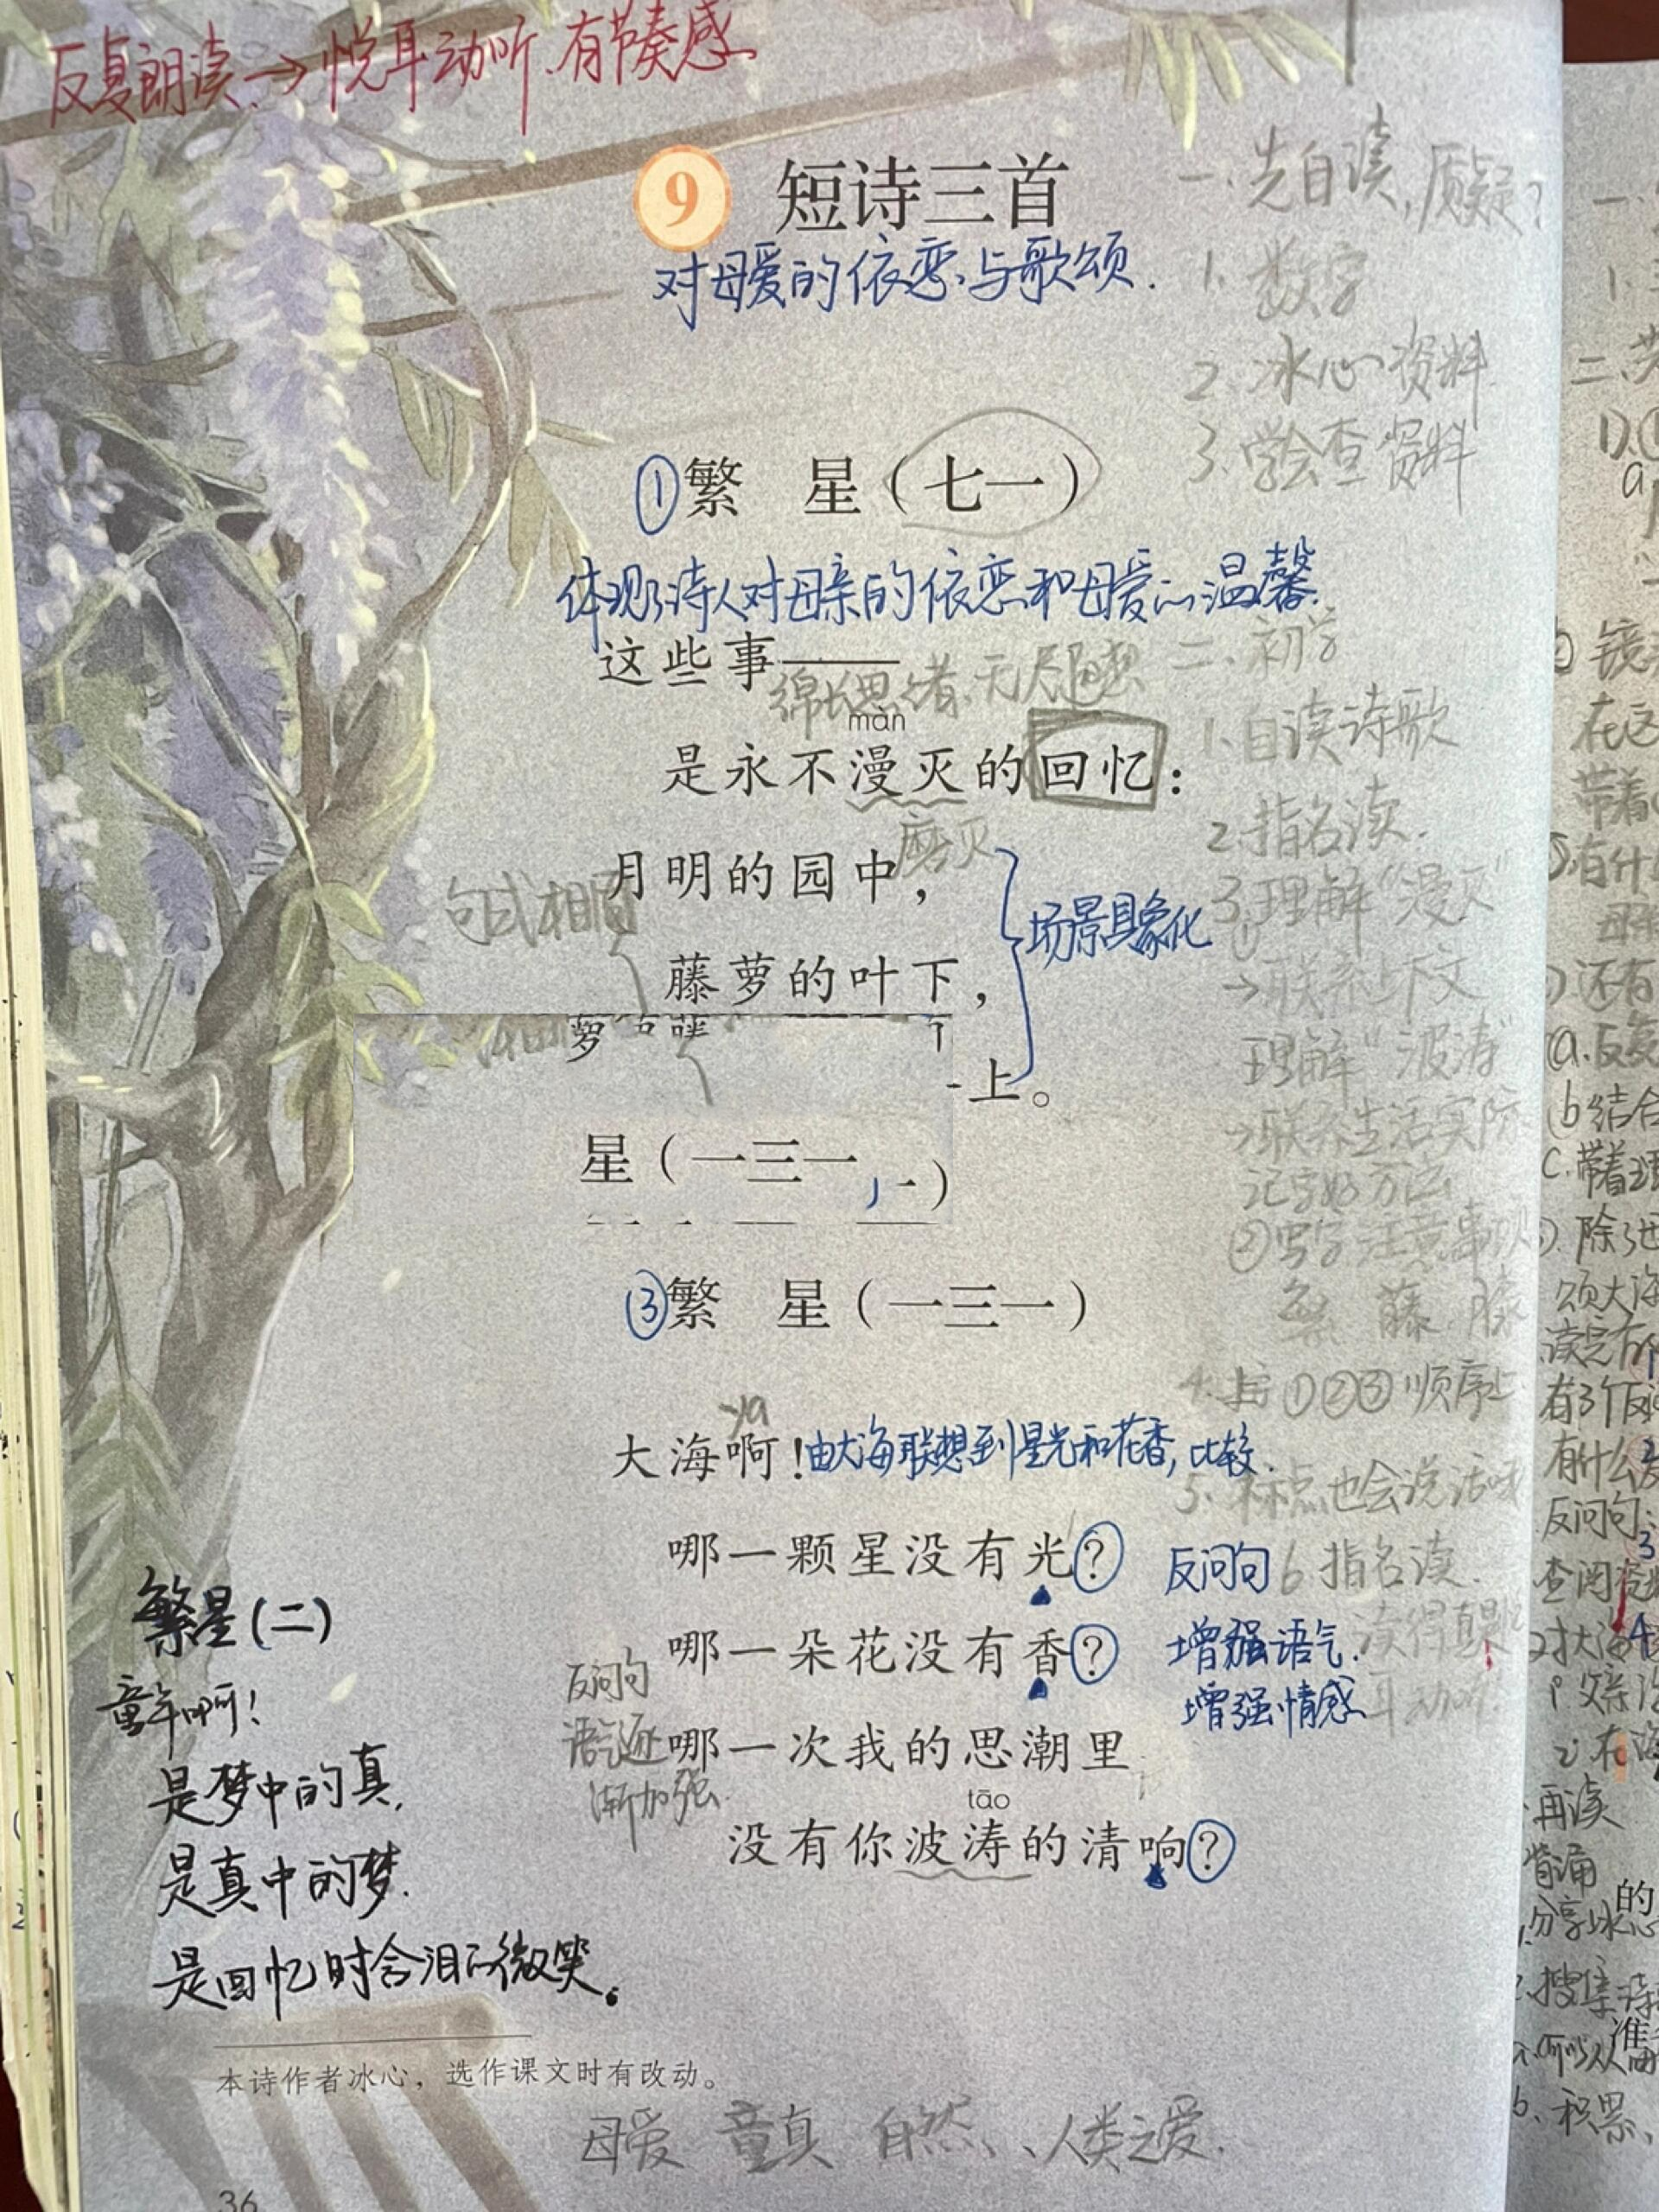 反复朗读→悦耳动听、有节奏感
9 短诗三首
对母爱的依恋与歌颂.
一、先自读,质疑?
1. 数字
2. 冰心资料
3. 学会查资料
①繁 星（七一）
体现了诗人对母亲的依恋和母爱的温馨.
这些事——
绵长思绪、无尽遐想
二、初学
màn
是永不漫灭的回忆：
1. 自读诗歌
磨灭
2. 指名读.
月明的园中，
句式相同
场景具象化
3. 理解“漫灭”
藤萝的叶下，
→联系下文
上。
理解“波涛”
→联系生活实际
星（一三一
）
记字好方法
②写字注意事项
繁 藤 膝
③繁 星（一三一）
4. 按①②③顺序
ya
大海啊！
由大海联想到星光和花香,比较.
5. 标点也会说话
哪一颗星没有光？
反问句
6 指名读.
哪一朵花没有香？
增强语气.
增强情感
反问句
语气逐
渐加强.
哪一次我的思潮里
tāo
没有你波涛的清响？
繁星(二)
童年啊!
是梦中的真,
是真中的梦.
是回忆时含泪的微笑。
本诗作者冰心，选作课文时有改动。
母爱 童真 自然、人类之爱.
36
在这
带着
有什
还有
a.反复
b结合
c.带着理
除了
颂大海
读完有什
有3个反问
有什么
反问句:
查阅资料
再读
背诵
的
分享冰心
搜集诗
准
b. 积累、